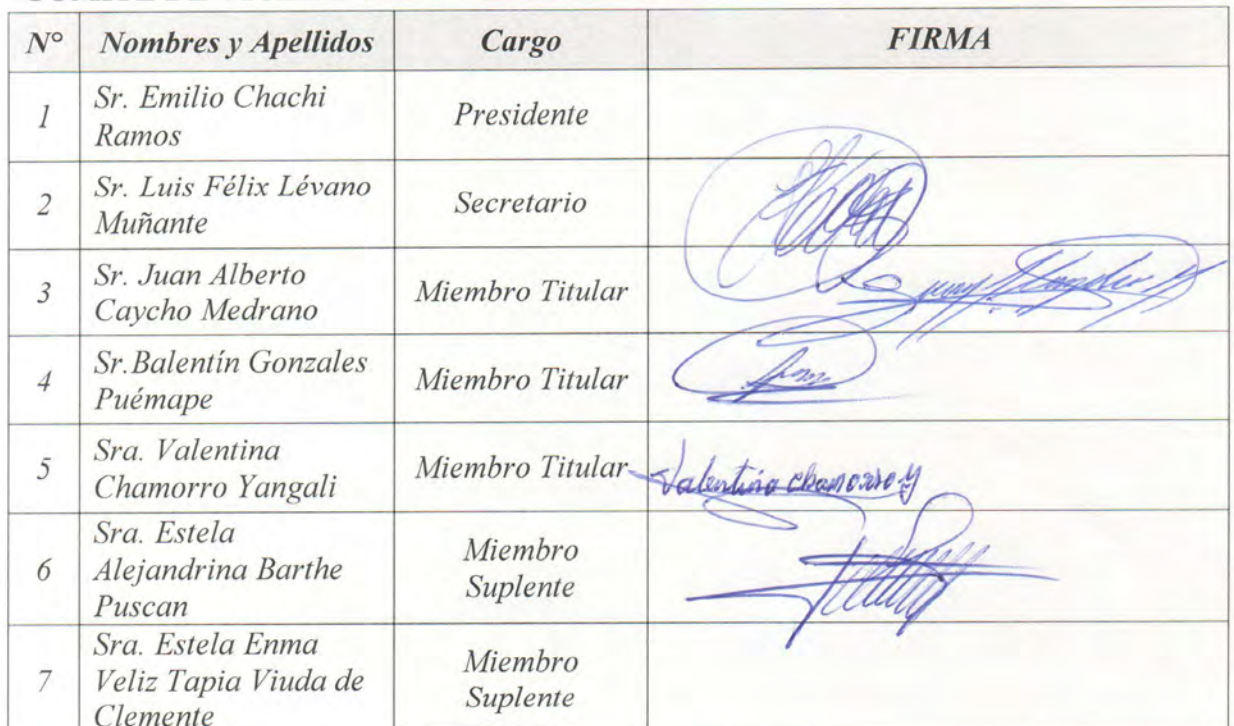 N° Nombres y Apellidos Cargo FIRMA
1 Sr. Emilio Chachi
Ramos
Presidente
2 Sr. Luis Félix Lévano
Muñante
Secretario
3 Sr. Juan Alberto
Caycho Medrano
Miembro Titular
4 Sr.Balentín Gonzales
Puémape
Miembro Titular
5 Sra. Valentina
Chamorro Yangali
Miembro Titular
Valentina Chamorro y
6 Sra. Estela
Alejandrina Barthe
Puscan
Miembro
Suplente
7 Sra. Estela Enma
Veliz Tapia Viuda de
Clemente
Miembro
Suplente